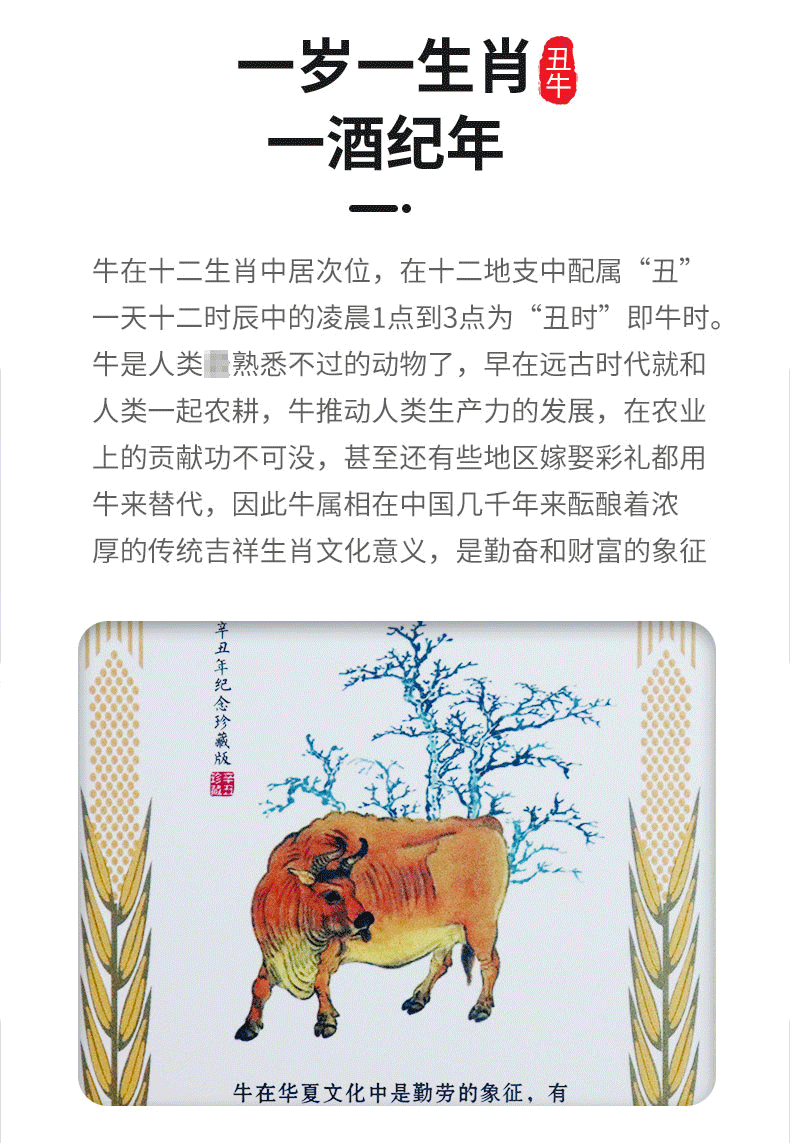 一岁一生肖
丑牛
一酒纪年
牛在十二生肖中居次位，在十二地支中配属“丑”
一天十二时辰中的凌晨1点到3点为“丑时”即牛时。
牛是人类熟悉不过的动物了，早在远古时代就和
人类一起农耕，牛推动人类生产力的发展，在农业
上的贡献功不可没，甚至还有些地区嫁娶彩礼都用
牛来替代，因此牛属相在中国几千年来酝酿着浓
厚的传统吉祥生肖文化意义，是勤奋和财富的象征
辛丑年纪念珍藏版
辛丑
珍藏
牛在华夏文化中是勤劳的象征，有